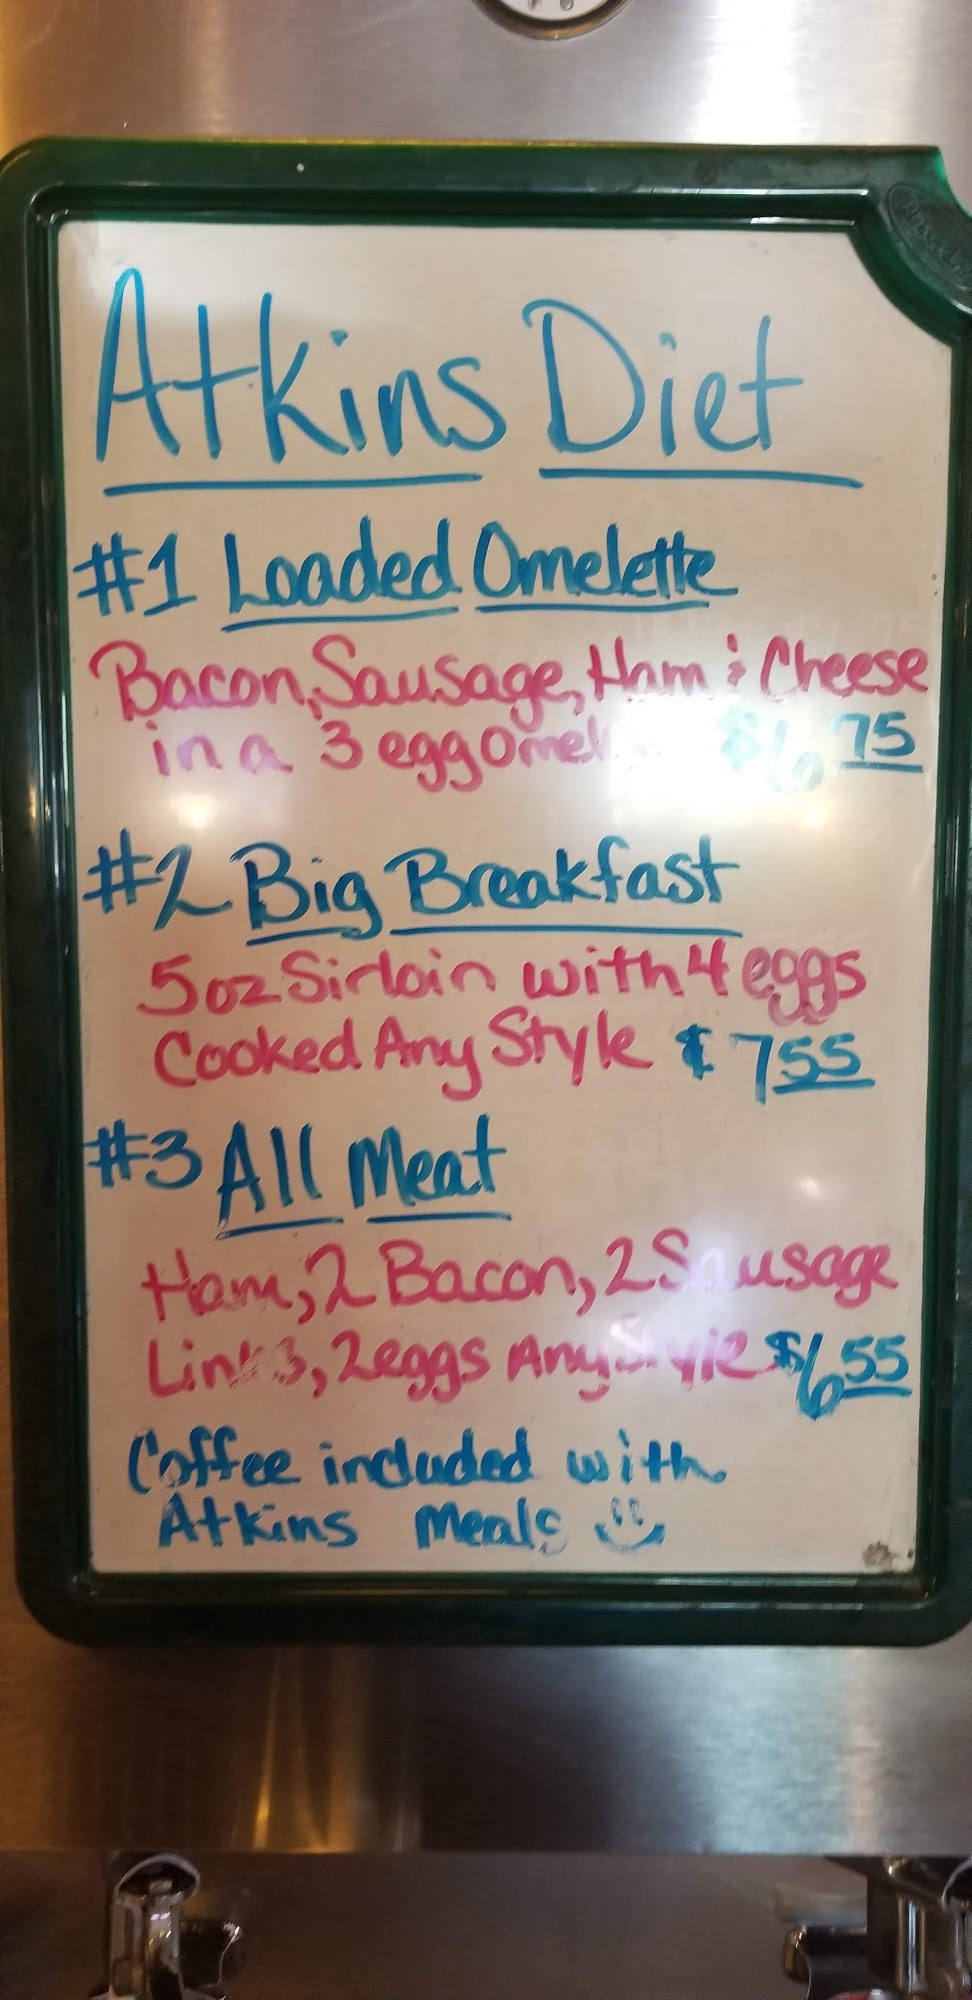 Atkins Diet
#1 Loaded Omelette
Bacon, Sausage, Ham & Cheese
in a 3 egg $6.75
#2 Big Breakfast
5oz Sirloin with 4 eggs
Cooked Any Style $7.55
#3 All Meat
Ham, 2 Bacon, 2 Sausage
Links, 2 eggs Any Style $6.55
Coffee included with
Atkins Meals